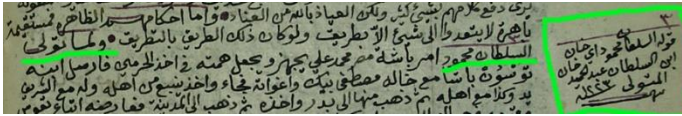 يرى دفع ظلامهم بشيئ ولكن العياذ بالله من العناد واما احكام الظاهر فمستقيمة
باهرة لا يتعدوا الى شيئ الا بطريف ولو كان ذلك الطريق بالتطريق ولما تولى
السلطان محمود امر باشة مصر محمد علي يجهز ويجعل همته في اخذ الحرمين فارسل ابنه
توسون باشا مع خاله مصطفى بيك واعوانه فجاء واخذ ينبع من اهله وله مع
اهله ثم ذهب منها الى بدر واخذه ثم ذهب الى المدينة
٣
قوله السلطان محمود اي خان
ابن السلطان عبد الحميد خان
المتولى ١٢٢٣سنة